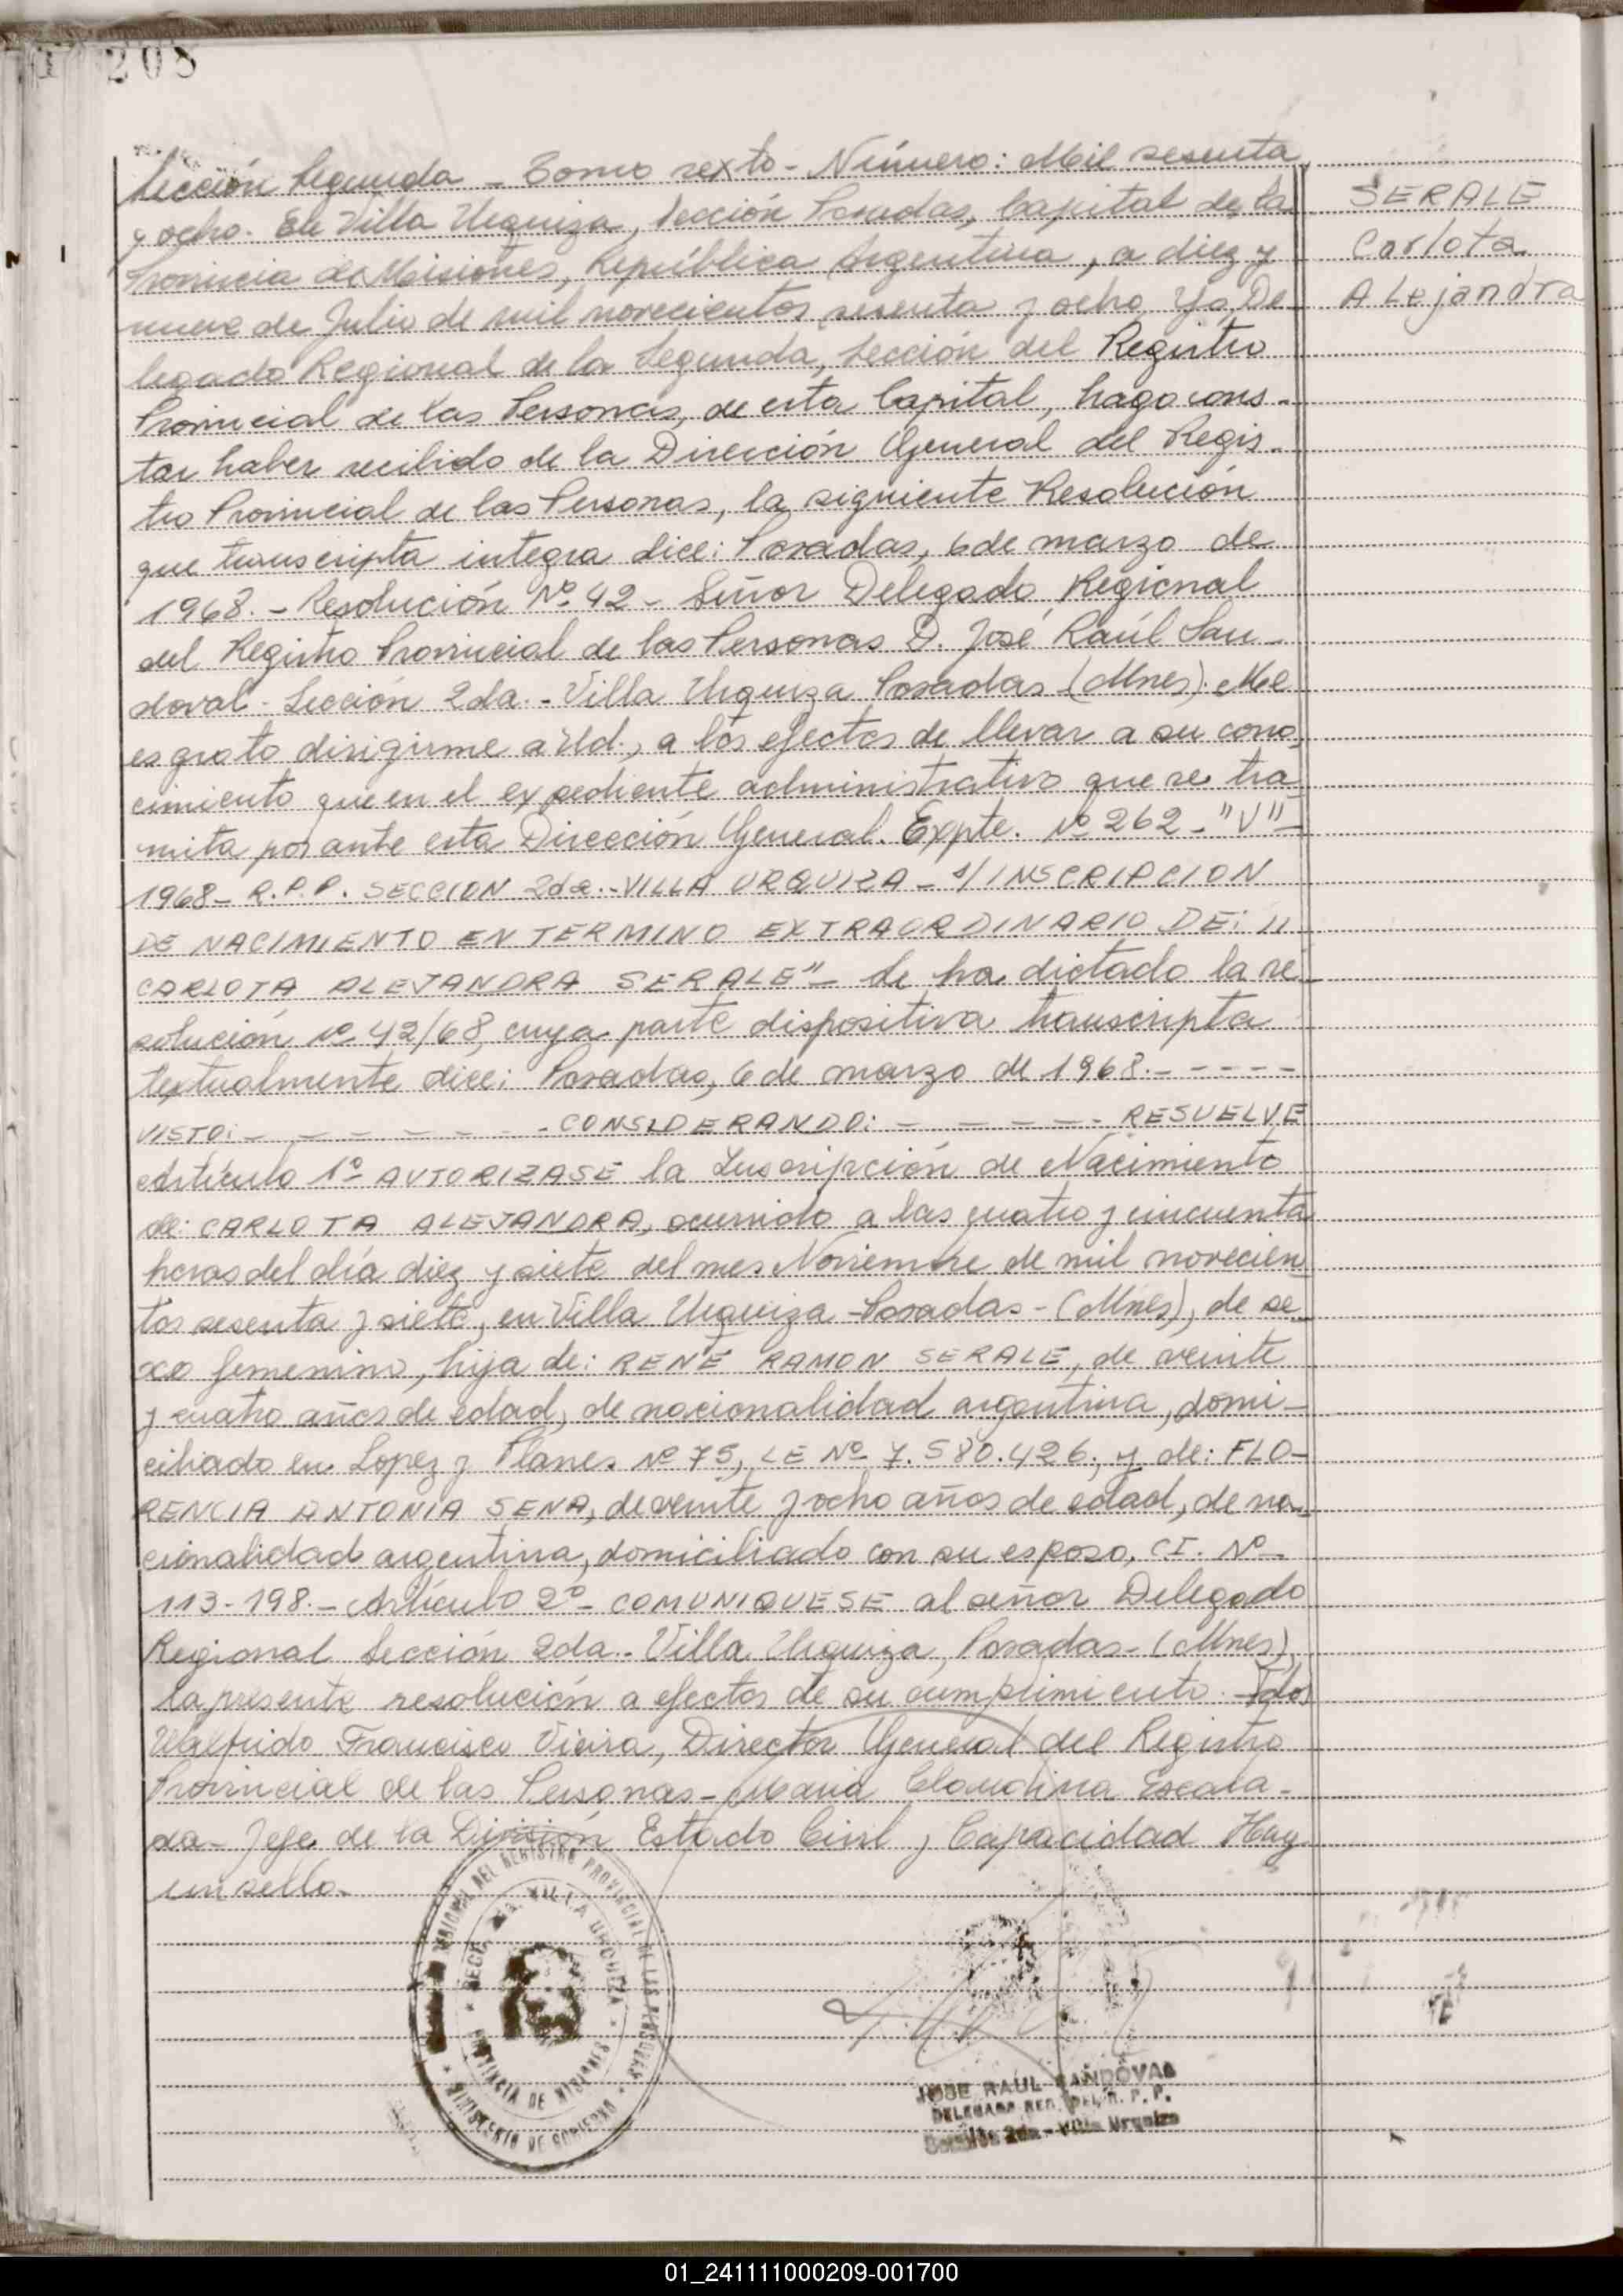 208
Sección Segunda - Tomo sexto - Número: Mil sesenta
y ocho. En Villa Urquiza, Sección Posadas, Capital de la
Provincia de Misiones, República Argentina, a diez y
nueve de Julio de mil novecientos sesenta y ocho, Yo, De-
legado Regional de la Segunda, Sección del Registro
Provincial de las Personas, de esta Capital, hago cons-
tar haber recibido de la Dirección General del Regis-
tro Provincial de las Personas, la siguiente Resolución
que transcripta integra dice: Posadas, 6 de marzo de
1968.- Resolución Nº 42- Señor Delegado Regional
del Registro Provincial de las Personas D. José Raúl San-
doval - Sección 2da.- Villa Urquiza Posadas (Mnes). Me
es grato dirigirme a Ud., a los efectos de llevar a su cono-
cimiento que en el expediente administrativo que se tra-
mita por ante esta Dirección General. Expte. Nº 262- "V"-
1968- R.P.P. SECCION 2da.- VILLA URQUIZA - s/INSCRIPCION
DE NACIMIENTO EN TERMINO EXTRAORDINARIO DE: "
CARLOTA ALEJANDRA SERALE"- Se ha dictado la re-
solución Nº 42/68, cuya parte dispositiva transcripta
textualmente dice: Posadas, 6 de marzo de 1968.- - - - -
VISTO: - - - - - - - - CONSIDERANDO: - - - - - RESUELVE
Artículo 1º AUTORIZASE la Inscripción de Nacimiento
de: CARLOTA ALEJANDRA, ocurrido a las cuatro y cincuenta
horas del día diez y siete del mes Noviembre de mil novecien
tos sesenta y siete, en Villa Urquiza - Posadas - (Mnes), de se-
xo femenino, hija de: RENE RAMON SERALE, de veinte
y cuatro años de edad, de nacionalidad argentina, domi-
ciliado en Lopez y Planes Nº 75, LE Nº 7.580.426, y de: FLO-
RENCIA ANTONIA SENA, de veinte y ocho años de edad, de na-
cionalidad argentina, domiciliado con su esposo, CI. Nº
113-198.- Artículo 2º- COMUNIQUESE al señor Delegado
Regional Sección 2da.- Villa Urquiza, Posadas- (Mnes),
la presente resolución a efectos de su cumplimiento. Fdos
Walfrido Francisco Vieira, Director General del Registro
Provincial de las Personas- Maria Claudina Escala-
da- Jefe de la División Estado Civil y Capacidad Hay
un sello.
SERALE
Carlota
Alejandra
REGIONAL DEL REGISTRO PROVINCIAL DE LAS PERSONAS
SECC. 2da. VILLA URQUIZA
PROVINCIA DE MISIONES
MINISTERIO DE GOBIERNO
JOSE RAUL SANDOVAL
DELEGADO REG. DEL R. P. P.
Sección 2da - Villa Urquiza
01_241111000209-001700